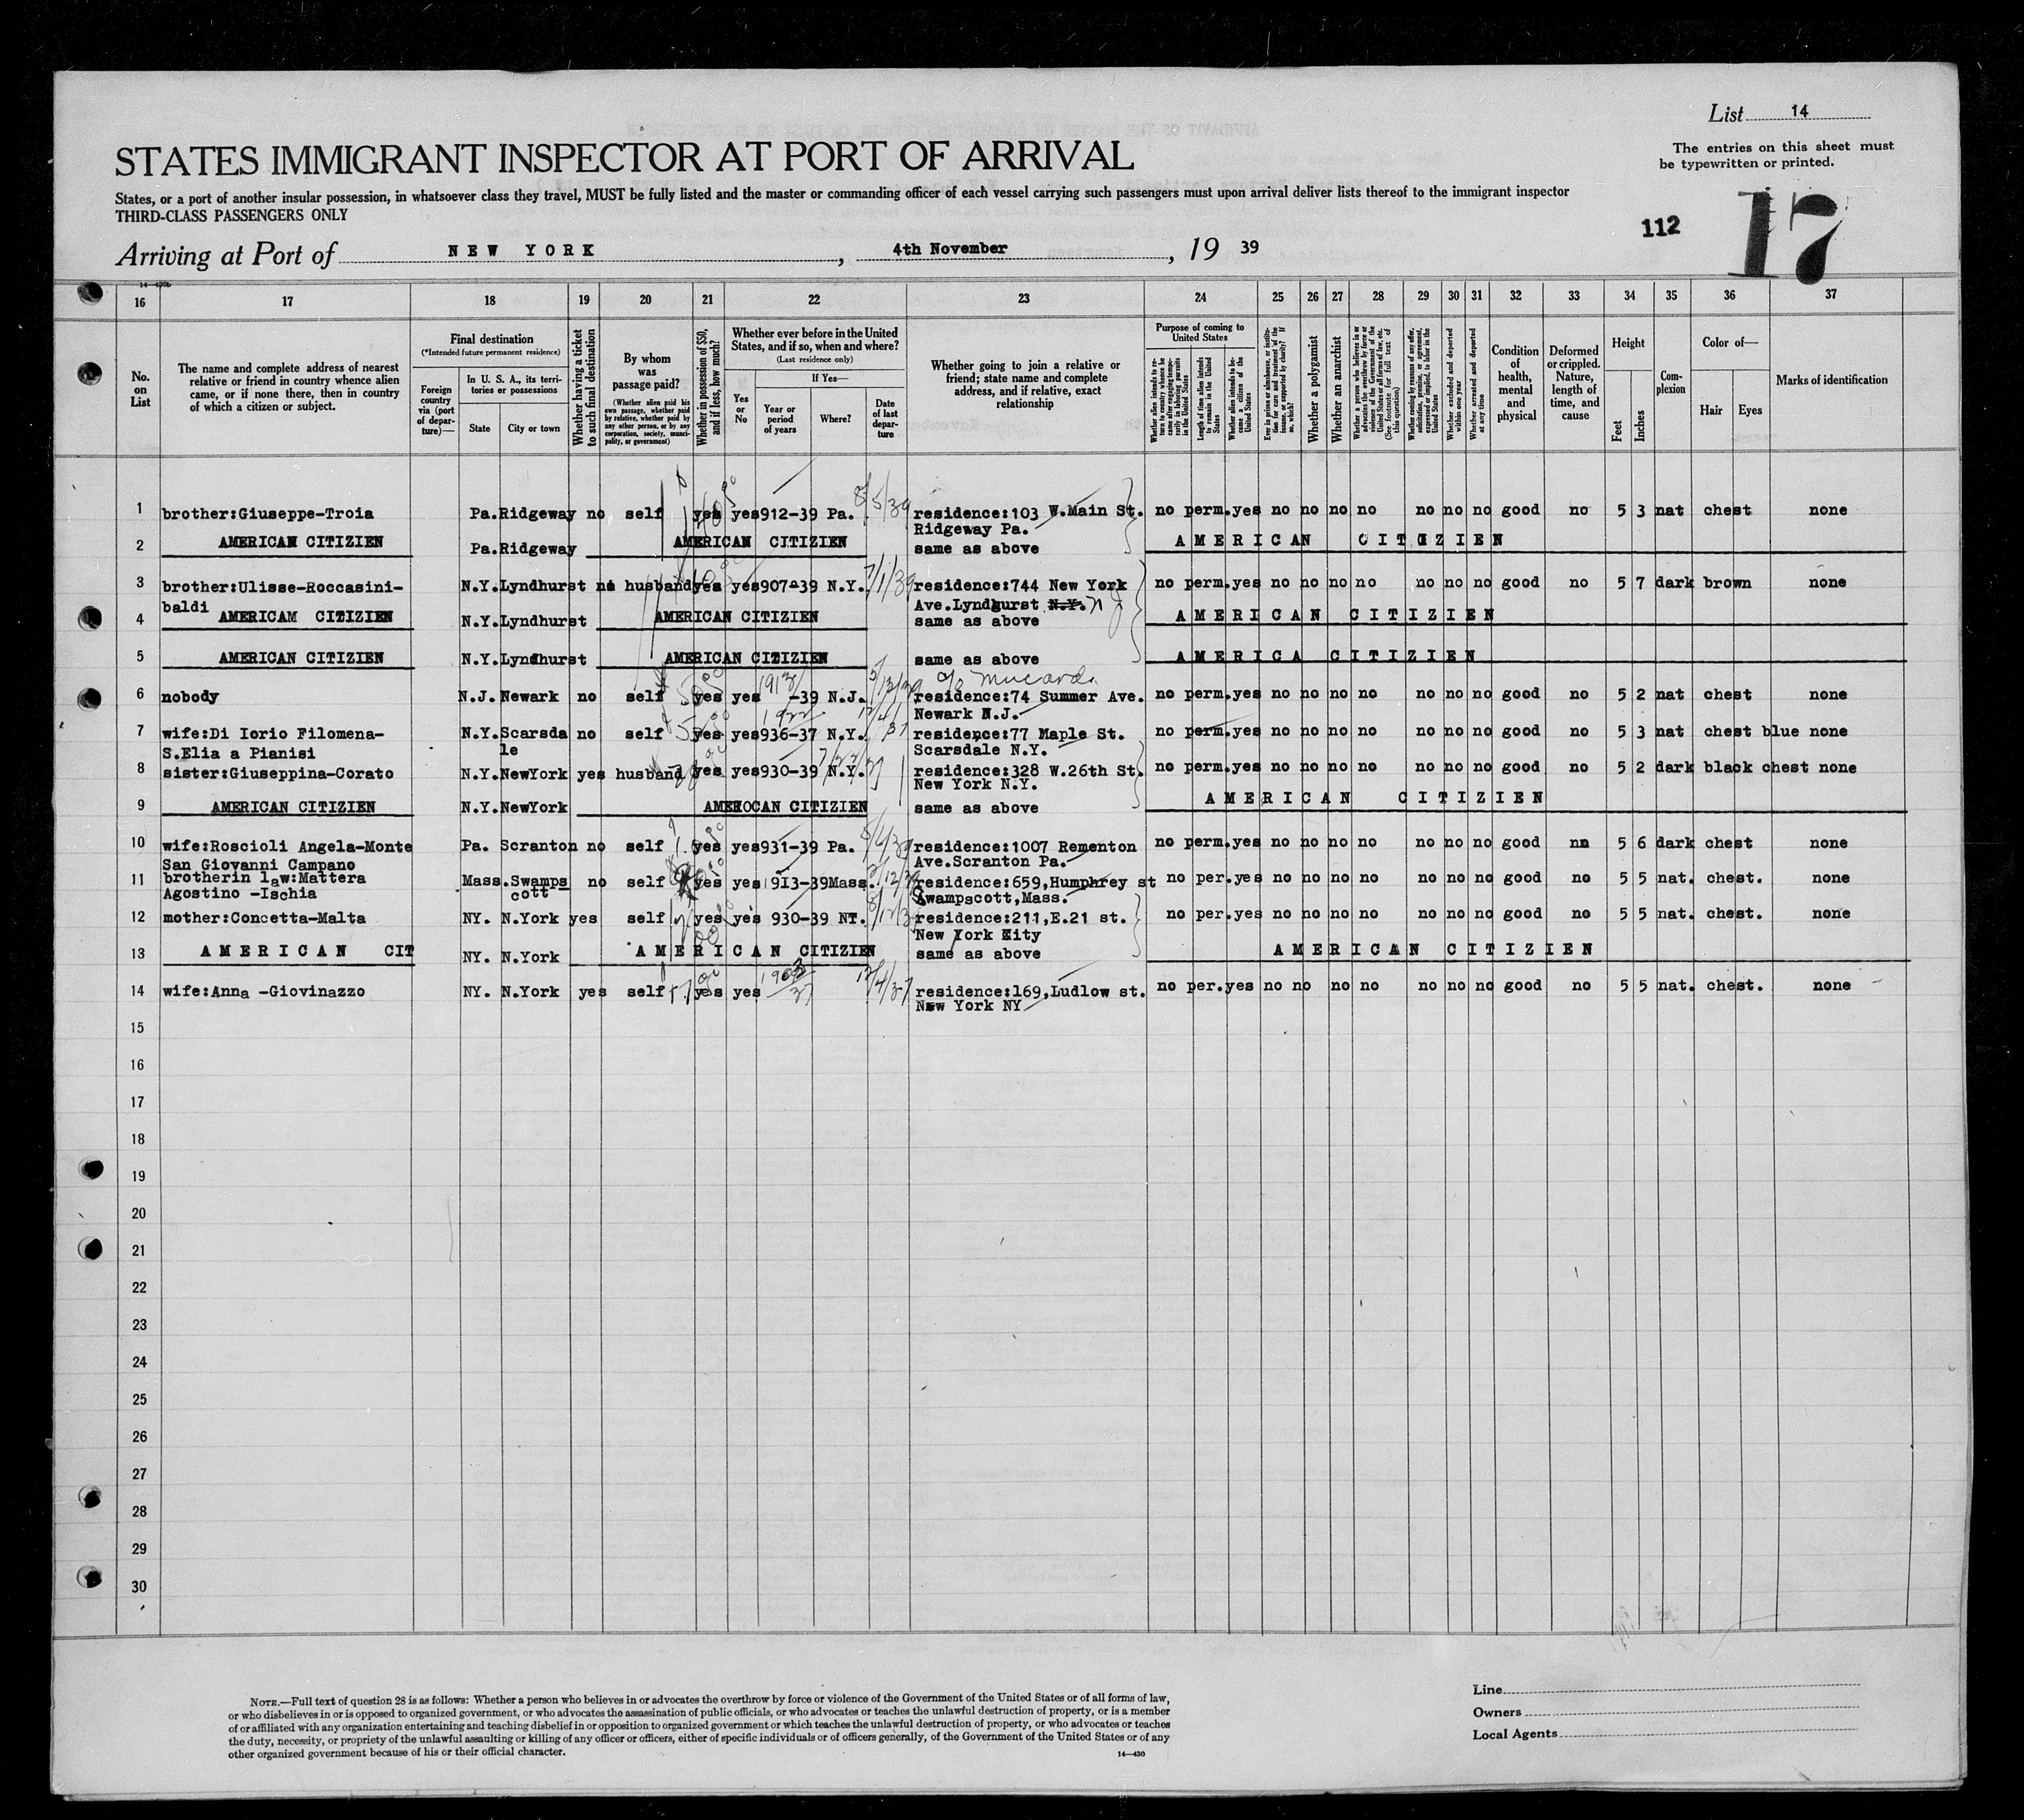 List 14
The entries on this sheet must
be typewritten or printed.
STATES IMMIGRANT INSPECTOR AT PORT OF ARRIVAL
States, or a port of another insular possession, in whatsoever class they travel, MUST be fully listed and the master or commanding officer of each vessel carrying such passengers must upon arrival deliver lists thereof to the immigrant inspector
THIRD-CLASS PASSENGERS ONLY
112 17
Arriving at Port of NEW YORK, 4th November, 19 39
16 17 18 19 20 21 22 23 24 25 26 27 28 29 30 31 32 33 34 35 36 37
No. on List
The name and complete address of nearest
relative or friend in country whence alien
came, or if none there, then in country
of which a citizen or subject.
Final destination
(*Intended future permanent residence)
Foreign country via (port of departure)—
In U. S. A., its territories or possessions
State City or town
Whether having a ticket to such final destination
By whom was passage paid?
(Whether alien paid his own passage, whether paid by relative, whether paid by any other person, or by any corporation, society, municipality, or government)
Whether in possession of $50, and if less, how much?
Whether ever before in the United States, and if so, when and where?
(Last residence only)
Yes or No
If Yes—
Year or period of years
Where?
Date of last departure
Whether going to join a relative or
friend; state name and complete
address, and if relative, exact
relationship
Purpose of coming to United States
Whether alien intends to return to country whence he came after engaging temporarily in laboring pursuits in the United States
Length of time alien intends to remain in the United States
Whether alien intends to become a citizen of the United States
Ever in prison or almshouse, or institution for care and treatment of the insane, or supported by charity? If so, which?
Whether a polygamist
Whether an anarchist
Whether coming by reasons of any offer, solicitation, promise, or agreement, expressed or implied, to labor in the United States
Whether excluded and deported within one year
Whether arrested and deported at any time
Condition of health, mental and physical
Deformed or crippled. Nature, length of time, and cause
Height
Feet Inches
Complexion
Color of—
Hair Eyes
Marks of identification
1 brother:Giuseppe-Troia Pa. Ridgeway no self yes yes 912-39 Pa. 8/5/39 residence:103 W.Main St. no perm. yes no no no no no no no good no 5 3 nat chest none
Ridgeway Pa.
2 AMERICAN CITIZIEN Pa. Ridgeway AMERICAN CITIZIEN same as above AMERICAN CITIZIEN
3 brother:Ulisse-Roccasini- N.Y. Lyndhurst no husband yes yes 907-39 N.Y. 7/1/39 residence:744 New York no perm. yes no no no no no no no good no 5 7 dark brown none
baldi Ave.Lyndhurst N.Y.
4 AMERICAM CITIZIEN N.Y. Lyndhurst AMERICAN CITIZIEN same as above AMERICAN CITIZIEN
5 AMERICAN CITIZIEN N.Y. Lyndhurst AMERICAN CITIZIEN same as above AMERICA CITIZIEN
6 nobody N.J. Newark no self yes yes -39 N.J. residence:74 Summer Ave. no perm. yes no no no no no no no good no 5 2 nat chest none
Newark N.J.
7 wife:Di Iorio Filomena- N.Y. Scarsda no self yes yes 936-37 N.Y. residence:77 Maple St. no perm. yes no no no no no no no good no 5 3 nat chest blue none
S.Elia a Pianisi le Scarsdale N.Y.
8 sister:Giuseppina-Corato N.Y. NewYork yes husband yes yes 930-39 N.Y. residence:328 W.26th St. no perm. yes no no no no no no no good no 5 2 dark black chest none
New York N.Y.
9 AMERICAN CITIZIEN N.Y. NewYork CITIZIEN same as above AMERICAN CITIZIEN
10 wife:Roscioli Angela-Monte Pa. Scranton no self yes yes 931-39 Pa. residence:1007 Rementon no perm. yes no no no no no no no good nn 5 6 dark chest none
San Giovanni Campano Ave.Scranton Pa.
11 brotherin law:Mattera Mass. Swamps no self yes yes 1913-39 Mass. residence:659,Humphrey st no per. yes no no no no no no no good no 5 5 nat. chest. none
Agostino -Ischia cott Swampscott,Mass.
12 mother:Concetta-Malta NY. N.York yes self yes yes 930-39 NT. residence:211,E.21 st. no per. yes no no no no no no no good no 5 5 nat. chest. none
New York City
13 AMERICAN CIT NY. N.York AMERICAN CITIZIEN same as above AMERICAN CITIZIEN
14 wife:Anna -Giovinazzo NY. N.York yes self yes yes 12/4/37 residence:169,Ludlow st. no per. yes no no no no no no no good no 5 5 nat. chest. none
New York NY
15
16
17
18
19
20
21
22
23
24
25
26
27
28
29
30
NOTE.—Full text of question 28 is as follows: Whether a person who believes in or advocates the overthrow by force or violence of the Government of the United States or of all forms of law,
or who disbelieves in or is opposed to organized government, or who advocates the assassination of public officials, or who advocates or teaches the unlawful destruction of property, or is a member
of or affiliated with any organization entertaining and teaching disbelief in or opposition to organized government or which teaches the unlawful destruction of property, or who advocates or teaches
the duty, necessity, or propriety of the unlawful assaulting or killing of any officer or officers, either of specific individuals or of officers generally, of the Government of the United States or of any
other organized government because of his or their official character.
14—430
Line
Owners
Local Agents